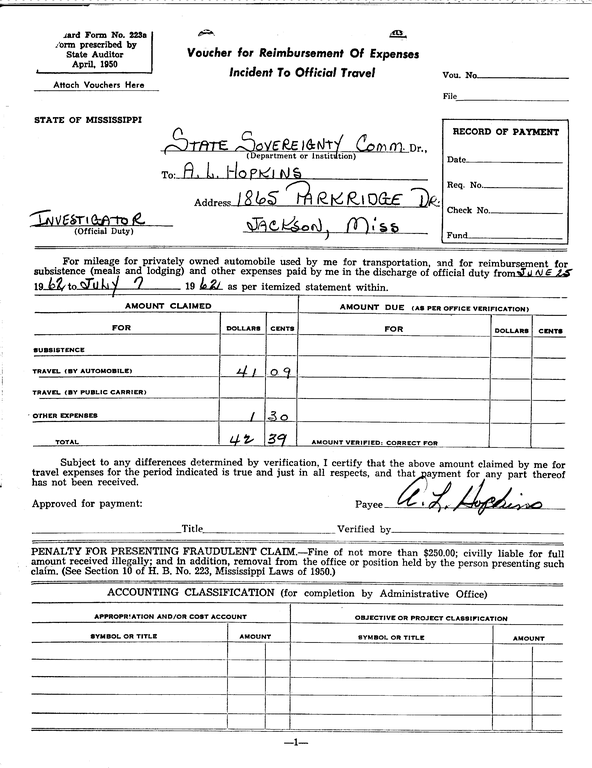 ard Form No. 223a
orm prescribed by
State Auditor
April, 1950
Attach Vouchers Here
Voucher for Reimbursement Of Expenses
Incident To Official Travel
Vou. No.
File
STATE OF MISSISSIPPI
STATE SOVEREIGNTY COMM. Dr.,
(Department or Institution)
To: A. L. HOPKINS
Address 1865 PARKRIDGE DR.
INVESTIGATOR
(Official Duty)
JACKSON, MISS
RECORD OF PAYMENT
Date
Req. No.
Check No.
Fund
For mileage for privately owned automobile used by me for transportation, and for reimbursement for
subsistence (meals and lodging) and other expenses paid by me in the discharge of official duty from JUNE 25
1962 to JULY 7 1962 as per itemized statement within.
AMOUNT CLAIMED AMOUNT DUE (AS PER OFFICE VERIFICATION)
FOR DOLLARS CENTS FOR DOLLARS CENTS
SUBSISTENCE
TRAVEL (BY AUTOMOBILE) 41 09
TRAVEL (BY PUBLIC CARRIER)
OTHER EXPENSES 1 30
TOTAL 42 39 AMOUNT VERIFIED: CORRECT FOR
Subject to any differences determined by verification, I certify that the above amount claimed by me for
travel expenses for the period indicated is true and just in all respects, and that payment for any part thereof
has not been received.
Approved for payment: Payee A. L. Hopkins
Title Verified by
PENALTY FOR PRESENTING FRAUDULENT CLAIM.—Fine of not more than $250.00; civilly liable for full
amount received illegally; and in addition, removal from the office or position held by the person presenting such
claim. (See Section 10 of H. B. No. 223, Mississippi Laws of 1950.)
ACCOUNTING CLASSIFICATION (for completion by Administrative Office)
APPROPRIATION AND/OR COST ACCOUNT OBJECTIVE OR PROJECT CLASSIFICATION
SYMBOL OR TITLE AMOUNT SYMBOL OR TITLE AMOUNT
—1—